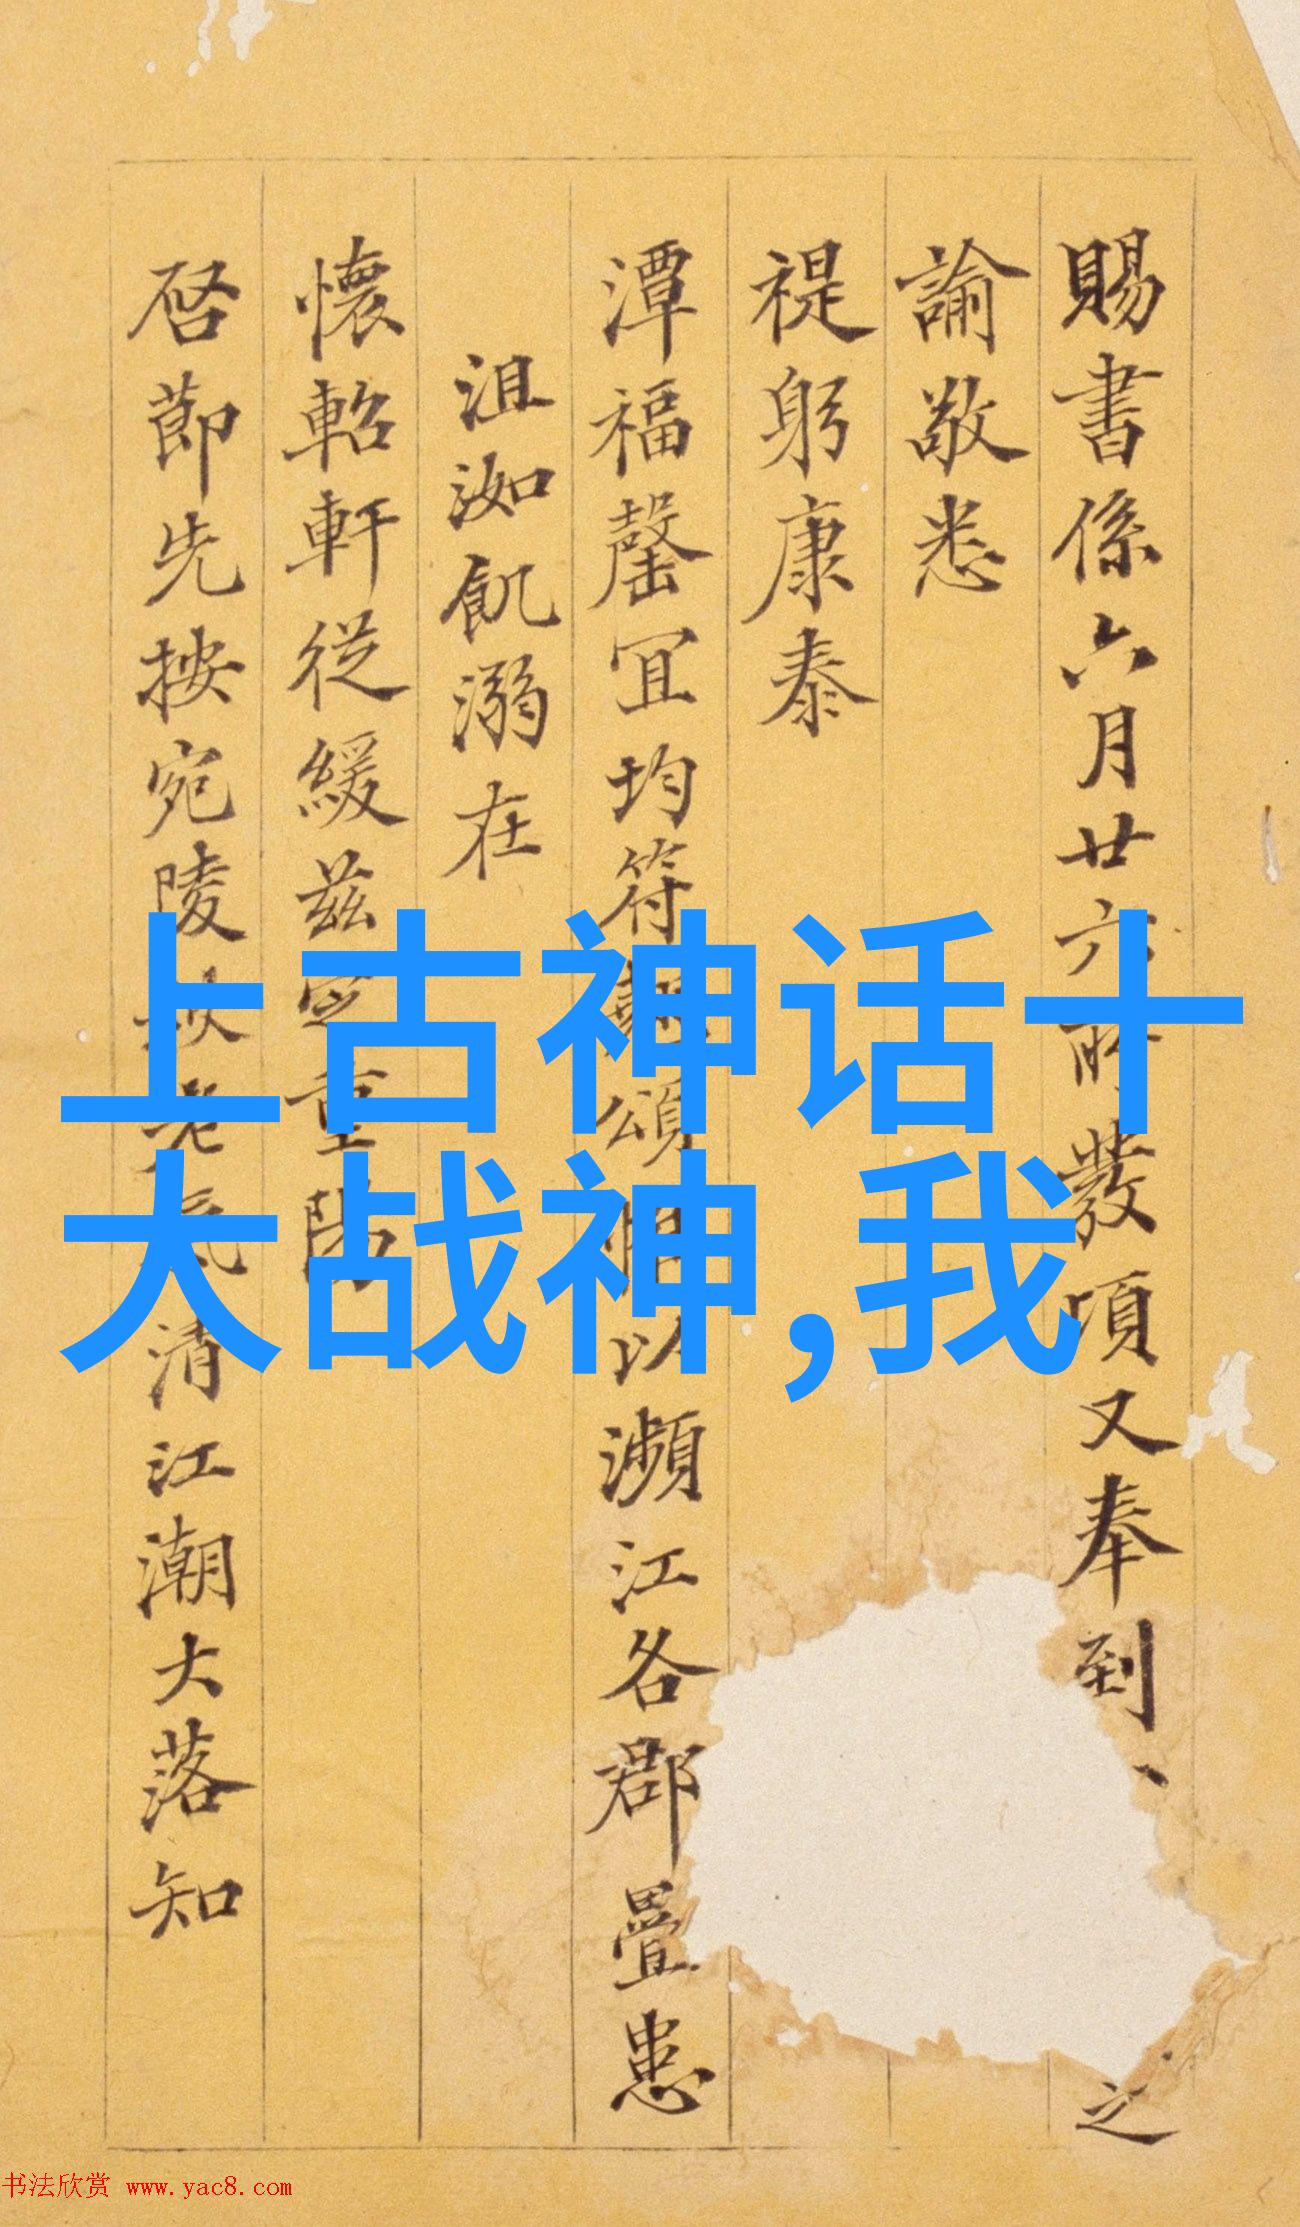 賜書係六月廿六所發頃又奉到
之
諭敬悉
禔躬康泰
潭福罄宜均符頌以瀕江各郡疊患
沮洳飢溺在
懷軺軒従緩茲重陽
啓節先按宛陵老氣清江潮大落知
上古神话十
大战神,我
书法欣赏 www.yac8.com